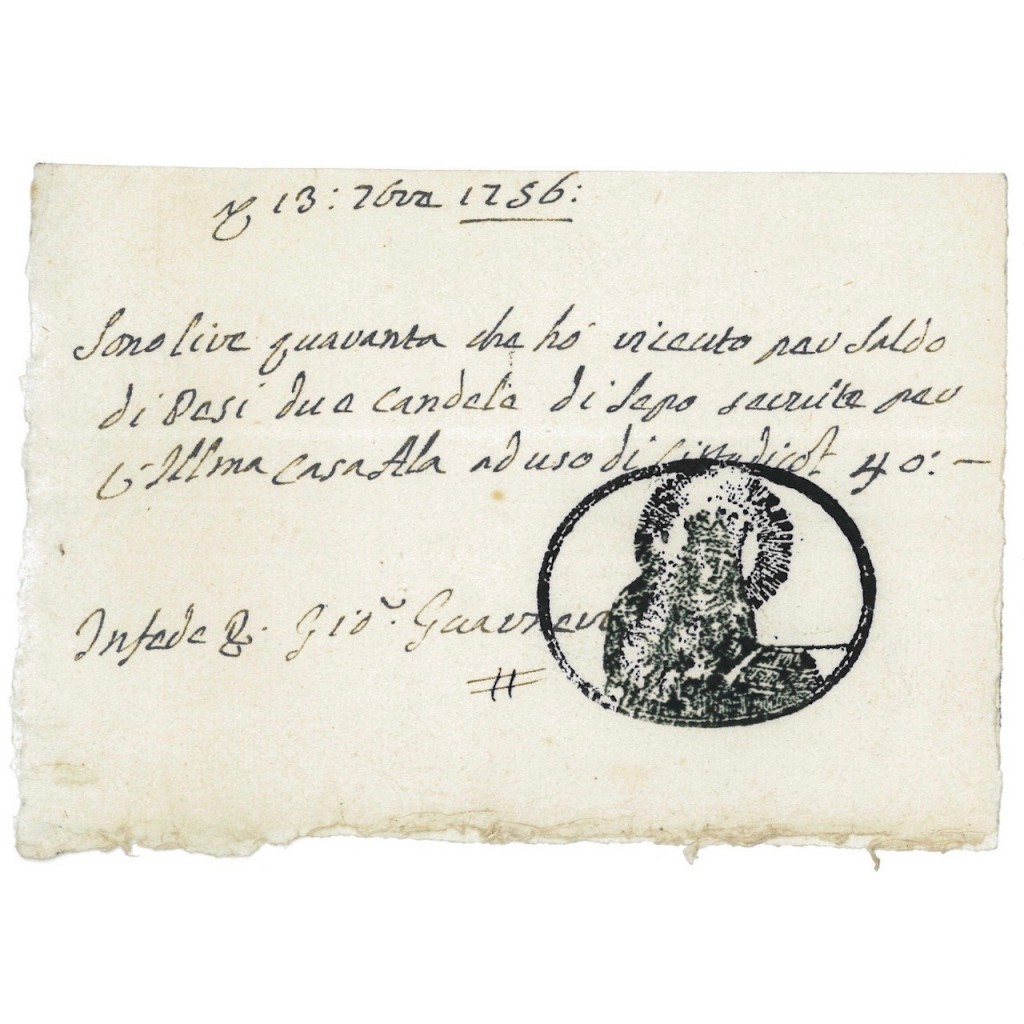 Ꝑ 13: 7bre 1756:
Sono lire quaranta che hò riceuto per saldo
di Pesi due candele di sepo seruite per
L'Illma Casa Ala ad uso di 40:—
In fede Gio. Guarneri